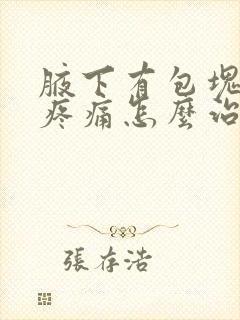 腋下有包塊
疼痛怎麼治
張存浩